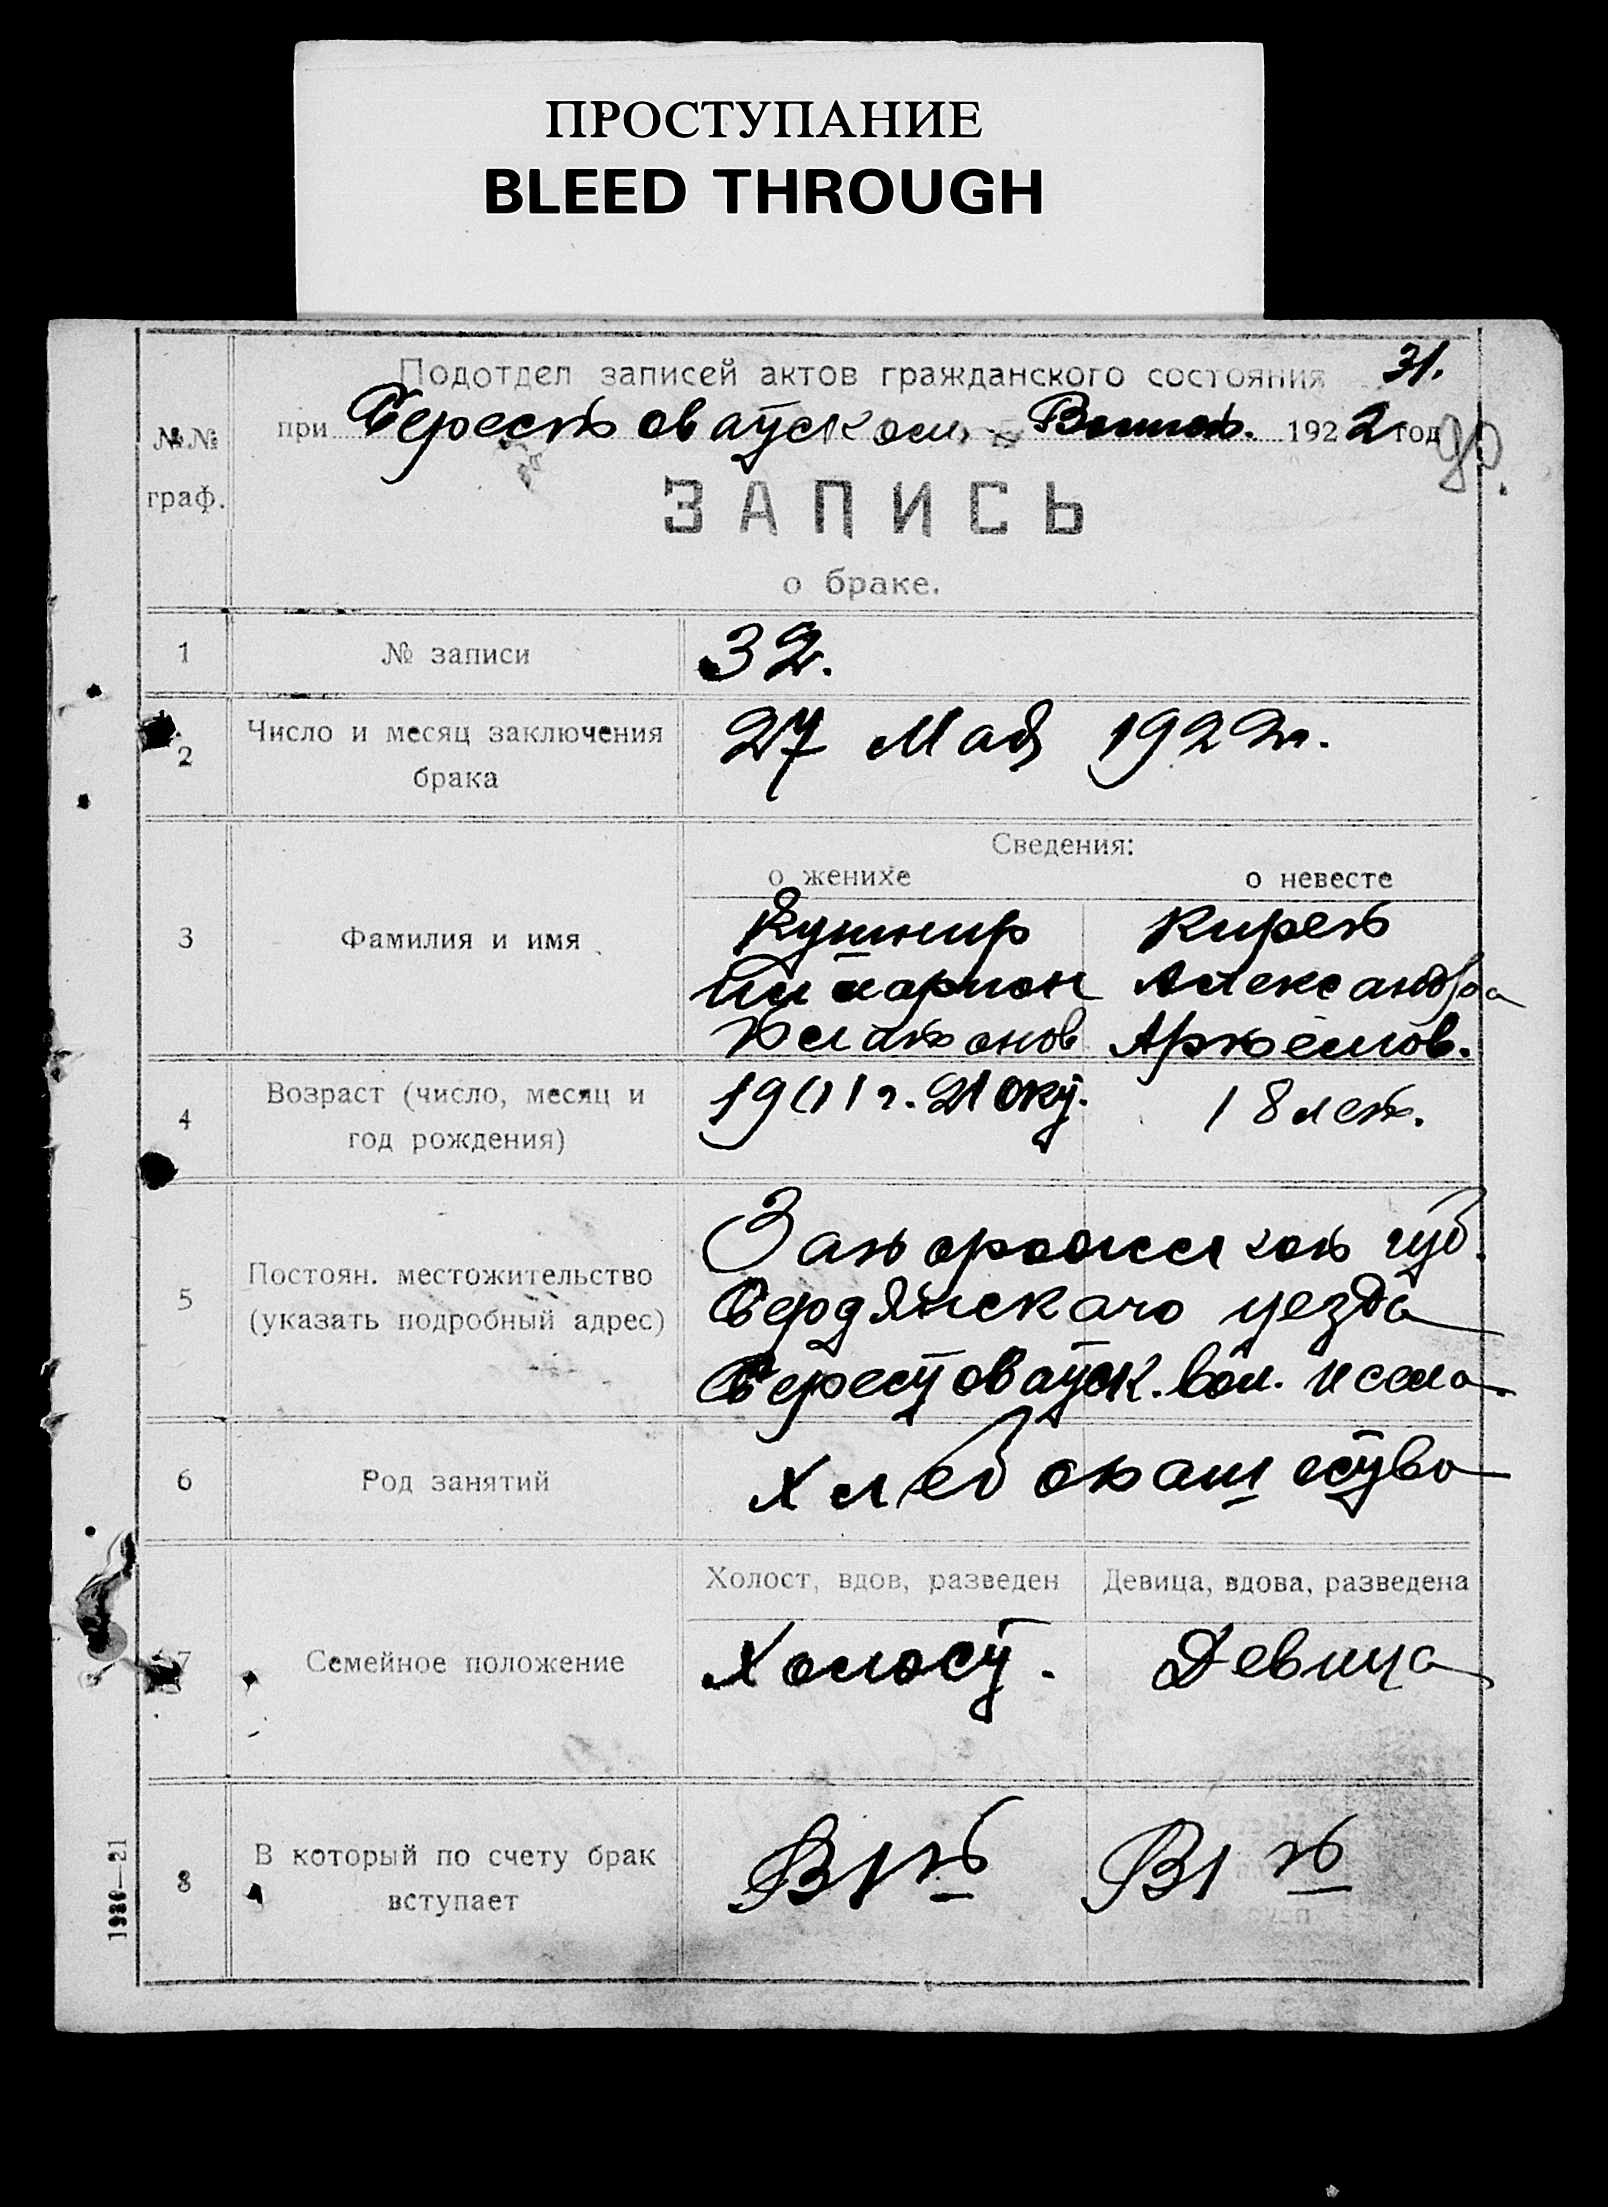 ПРОСТУПАНИЕ
BLEED THROUGH
31.
Подотдел записей актов гражданского состояния
при Берестоватском 1922 год
№№
граф.
ЗАПИСЬ
о браке.
1 № записи 32.
2 Число и месяц заключения 27 Мая 1922 г.
брака
Сведения:
о женихе о невесте
3 Фамилия и имя Кушнир Кирет
Илларион Александра
Платонов Артемов.
4 Возраст (число, месяц и 1901 г. 21 Окт. 18 лет.
год рождения)
5 Постоян. местожительство Запорожской губ.
(указать подробный адрес) Бердянскаго уезда
Берестоватск. вол. и села
6 Род занятий Хлебопашество
Холост, вдов, разведен Девица, вдова, разведена
7 Семейное положение Холост. Девица
8 В который по счету брак В 1й В 1й
вступает